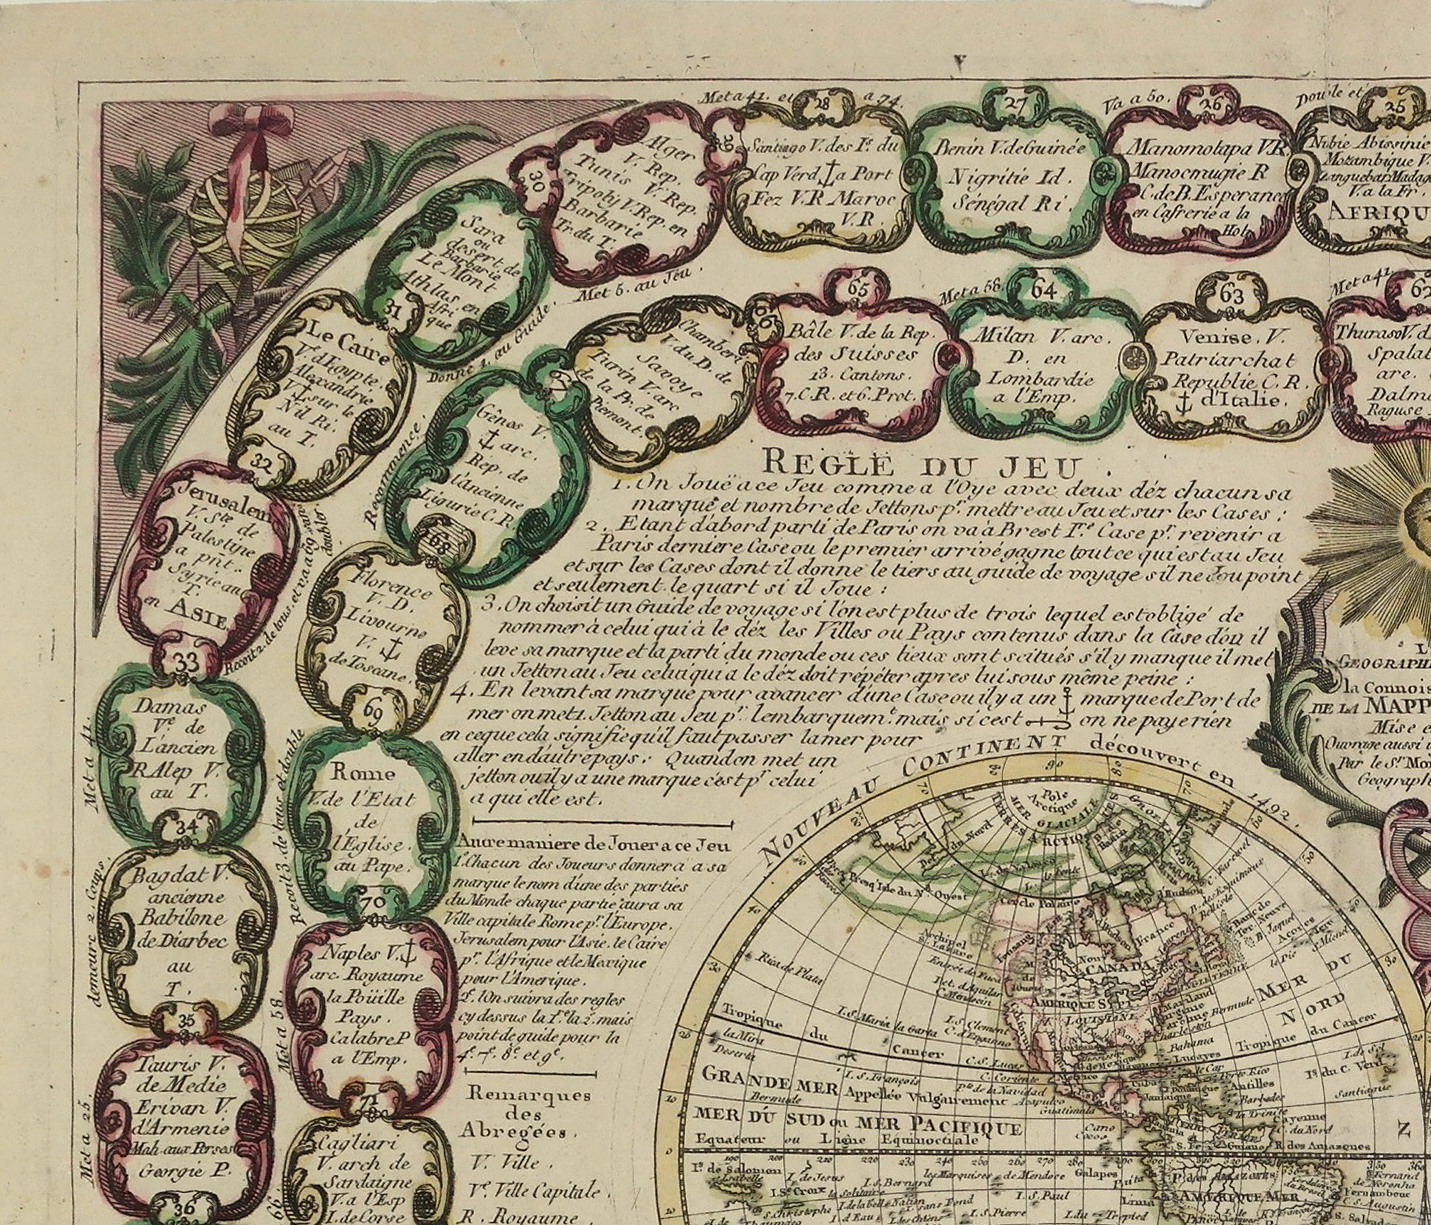 Met a 41. et
28
a 74.
27
Va a 50.
26
Double et
25
Santiago V. des I.s du
Cap Verd a Port
Fez V.R Maroc
V.R.
Benin V. de Guinée
Nigritie Id.
Sénégal Ri
Manomotapa V.R
Manoemugie R
C. de B. Esperance
en Cafrerie a la
Hol.
Nubie Abissinie
Mozambique V.
Zanguebar Madag
V. a la Fr.
AFRIQU
29
Alger
V. Rep.
Tunis V. Rep.
Tripoly V. Rep. en
Barbarie
Tr. du T.
30
Met 5. au Jeu.
Sara
ou
desert de
Barbarie
Le Mont
Athlas en
Afri
que
31
Donne 1. au Guide.
Le Caire
V. d'Egypte.
Alexandrie
V. sur le
Nil Ri.
au T.
32
Jerusalem
V. S.te de
Palestine
a pñt.
Syrie au
T.
en ASIE
33
Recoit 2. de tous, et va a 69 sans
doubler.
Met a 41.
Damas
V.e de
L'ancien
R Alep V.
au T.
34
demeure 2. Coups.
Bagdat V.
ancienne
Babilone
de Diarbec
au
T.
35
Met a 25.
Tauris V.
de Medie
Erivan V.
d'Armenie
Mah. aux Perses
Georgie P.
36
62
Met a 41.
Thuraso V. d
Spalat
arc.
Dalma
Raguse
63
Venise. V.
Patriarchat
Republie C. R.
d'Italie.
64
Met a 58.
Milan V. arc.
D. en
Lombardie
a l'Emp.
65
Bâle V. de la Rep.
des Suisses
13. Cantons.
7. C. R. et 6. Prot.
66
Chamberi
V. du D. de
Savoye
Turin V. arc
de la Pr. de
Piemont.
67
Recommence
Gênes V.
arc.
Rep. de
l'ancienne
Ligurie C. R.
68
Florence
V. D.
Livourne
V.
de Toscane.
69
Recoit 3. de tous et double
Rome
V. de l'Etat
de
l'Eglise.
au Pape.
70
Met a 58.
Naples V.
arc. Royaume
la Poüille
Pays.
Calabre P
a l'Emp.
71
66
Cagliari
V. arch de
Sardaigne
V. a l'Esp
I. de Corse
REGLE DU JEU.
1. On Jouë a ce Jeu comme a l'Oye avec deux déz chacun sa
marque et nombre de Jettons p.r mettre au Jeu et sur les Cases:
2. Etant d'abord parti de Paris on va à Brest I.re Case p.r revenir a
Paris derniere Case ou le premier arrivé gagne tout ce qui est au Jeu
et sur les Cases dont il donne le tiers au guide de voyage s'il ne Jou point
et seulement le quart si il Joue:
3. On choisit un Guide de voyage si l'on est plus de trois lequel est obligé de
nommer à celui qui à le déz les Villes ou Pays contenus dans la Case d'ou il
leve sa marque et la parti du monde ou ces lieux sont scitués s'il y manque il met
un Jetton au Jeu celui qui a le déz doit répéter apres lui sous même peine:
4. En levant sa marque pour avancer d'une Case ou il y a un marque de Port de
mer on met 1. Jetton au Jeu p.r l'embarquem.t mais si c'est on ne paye rien
en ce que cela signifie qu'il faut passer la mer pour
aller en d'autre pays: Quand on met un
jetton ou il y a une marque c'est p.r celui
a qui elle est.
Autre maniere de Jouer a ce Jeu
1. Chacun des Joueurs donnera a sa
marque le nom d'une des parties
du Monde chaque partie aura sa
Ville capitale Rome p.r l'Europe.
Jerusalem pour l'Asie. le Caire
p.r l'Afrique et le Mexique
pour l'Amerique.
2. l'On suivra des regles
cy dessus la 1.re la 2. mais
point de guide pour la
4.e 7.e 8.e et 9.e.
Remarques
des
Abregées.
V. Ville.
V.e Ville Capitale.
R. Royaume
GEOGRAPHI
la Connois
DE LA MAPP
Mise e
Ouvrage aussi i
Par le S.r Mo
Geograph
NOUVEAU CONTINENT découvert en 1492.
Pole
Arctique
MER GLACIALE
TERRES ARCTIQ
Cercle Polaire
CANADA
France
AMERIQUE SEPT
LOUISIANE
MER DU
NORD
Tropique du Cancer
Tropique du Cancer
Bermude
Bahama
Lucayes
Antilles
Barbade
la Trinite
Cayenne
C. du Nord
R. des Amazones
Santiague
Guatimala
la Mira
Deserta
I. S. Maria la Gorta
I. S. Clement
C. S. Lucas
I. S. François
C. Coriente
GRANDE MER Appellée Vulgairement
Bermude
Acapulco
MER DU SUD ou MER PACIFIQUE
Equateur ou Ligne Equinoctiale
I.s de Salomon
Isabelle
I. de Jesus
I. S. Bernard
les Marquises de Mendoce
Galapes
I. S. Croix
la Solitaire
I. S. Paul
I. S. Pierre
AMERIQUE MER
Z